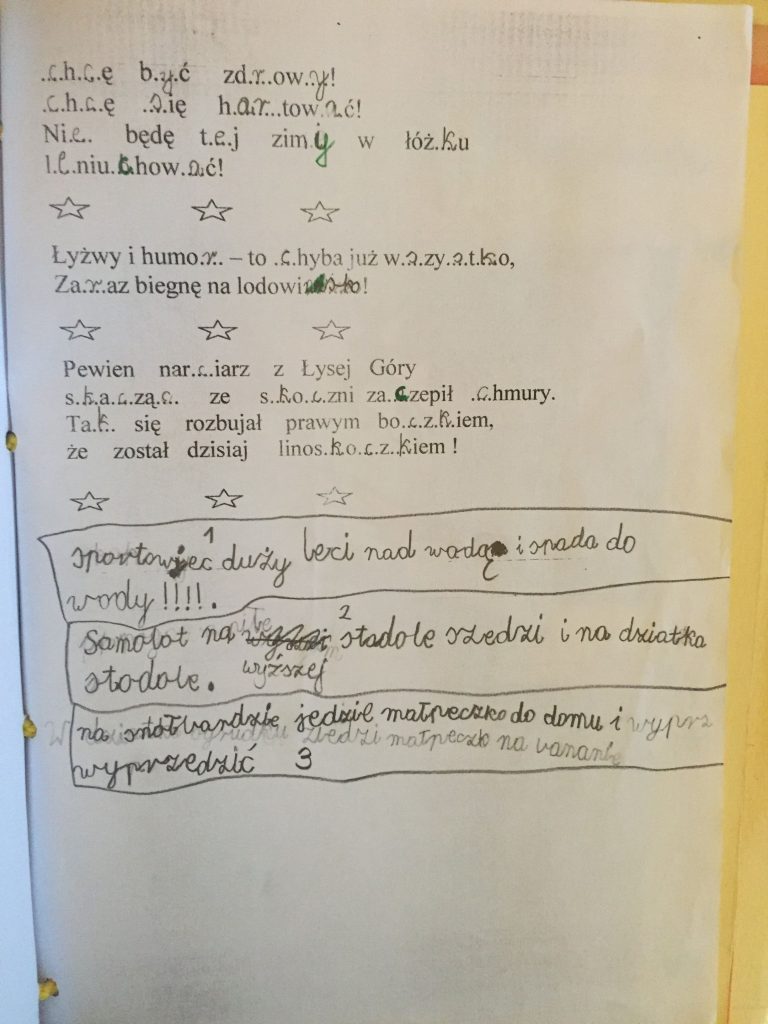 .c.h.c.ę b.y.ć zd.r..ow..y!
.c.h.c.ę .s.ię h.ar...tow.a.ć!
Ni.e. będę t.e.j zim.y w łóż.k.u
l.e.niu.c.how.a.ć!
Łyżwy i humo.r.. – to .c.hyba już w.s.zy.s.t.k.o,
Za.r.az biegnę na lodowi
Pewien nar.c.iarz z Łysej Góry
s.k.a.c.zą.c. ze s..k.o.c.zni za.c.zepił .c.hmury.
Ta.k. się rozbujał prawym bo.c.z.k.iem,
że został dzisiaj linos.k.o.c.z..k.iem !
1
sportowjec duży leci nad wodą i spada do
wody !!!!.
2
Samolot na stodole szedzi i na dziatka
wyższej
stodole.
na jedzie małpeczko do domu i wyprz
zɓedzi małpeczko na
wyprzedzić 3